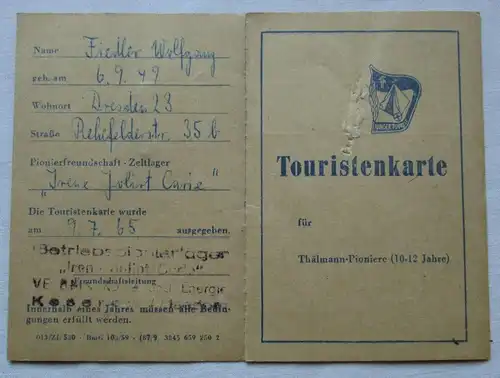 Name Fiedler Wolfgang
geb. am 6. 9. 49
Wohnort Dresden 23
Straße Rehefelderstr. 35 b
Pionierfreundschaft - Zeltlager
„Irene Joliot Curie"
Die Touristenkarte wurde
am 9. 7. 65 ausgegeben.
Betriebspionierlager
Freundschaftsleitung
Innerhalb eines Jahres müssen alle Bedin-
gungen erfüllt werden.
Touristenkarte
für
Thälmann-Pioniere (10-12 Jahre)